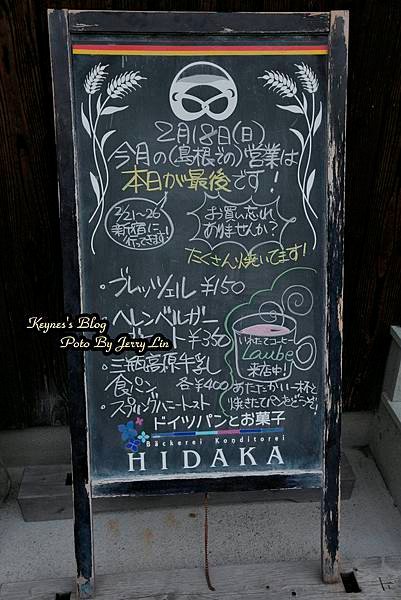 2月18日(日)
今月の(島根での)営業は
本日が最後です!
2/21~26
新宿に
行ってきます!
お買い忘れ
ありませんか?
たくさん焼いてます!
・ブレッツェル ¥150
・ヘレンベルガー
¥350
・三瓶高原牛乳
食パン 各¥400
・スプリングハニートースト
いれたてコーヒー
Laube
来店中!
あたたかい一杯と
焼きたてパンをどうぞ!
Keynes's Blog
Poto By Jerry Lin
ドイツパンとお菓子
Bäckerei Konditorei
HIDAKA